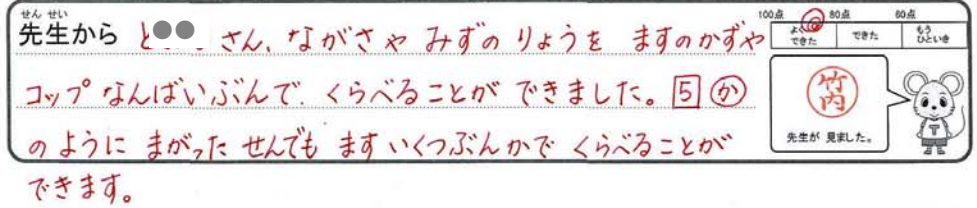 せんせい
先生から と さん、ながさや みずの りょうを ますのかずや
コップ なんばいぶんで、くらべることが できました。5 か
の ように まがった せんでも ます いくつぶんかで くらべることが
できます。
100点 80点 60点
よく
できた
できた
もう
ひといき
竹内
先生が 見ました。
T